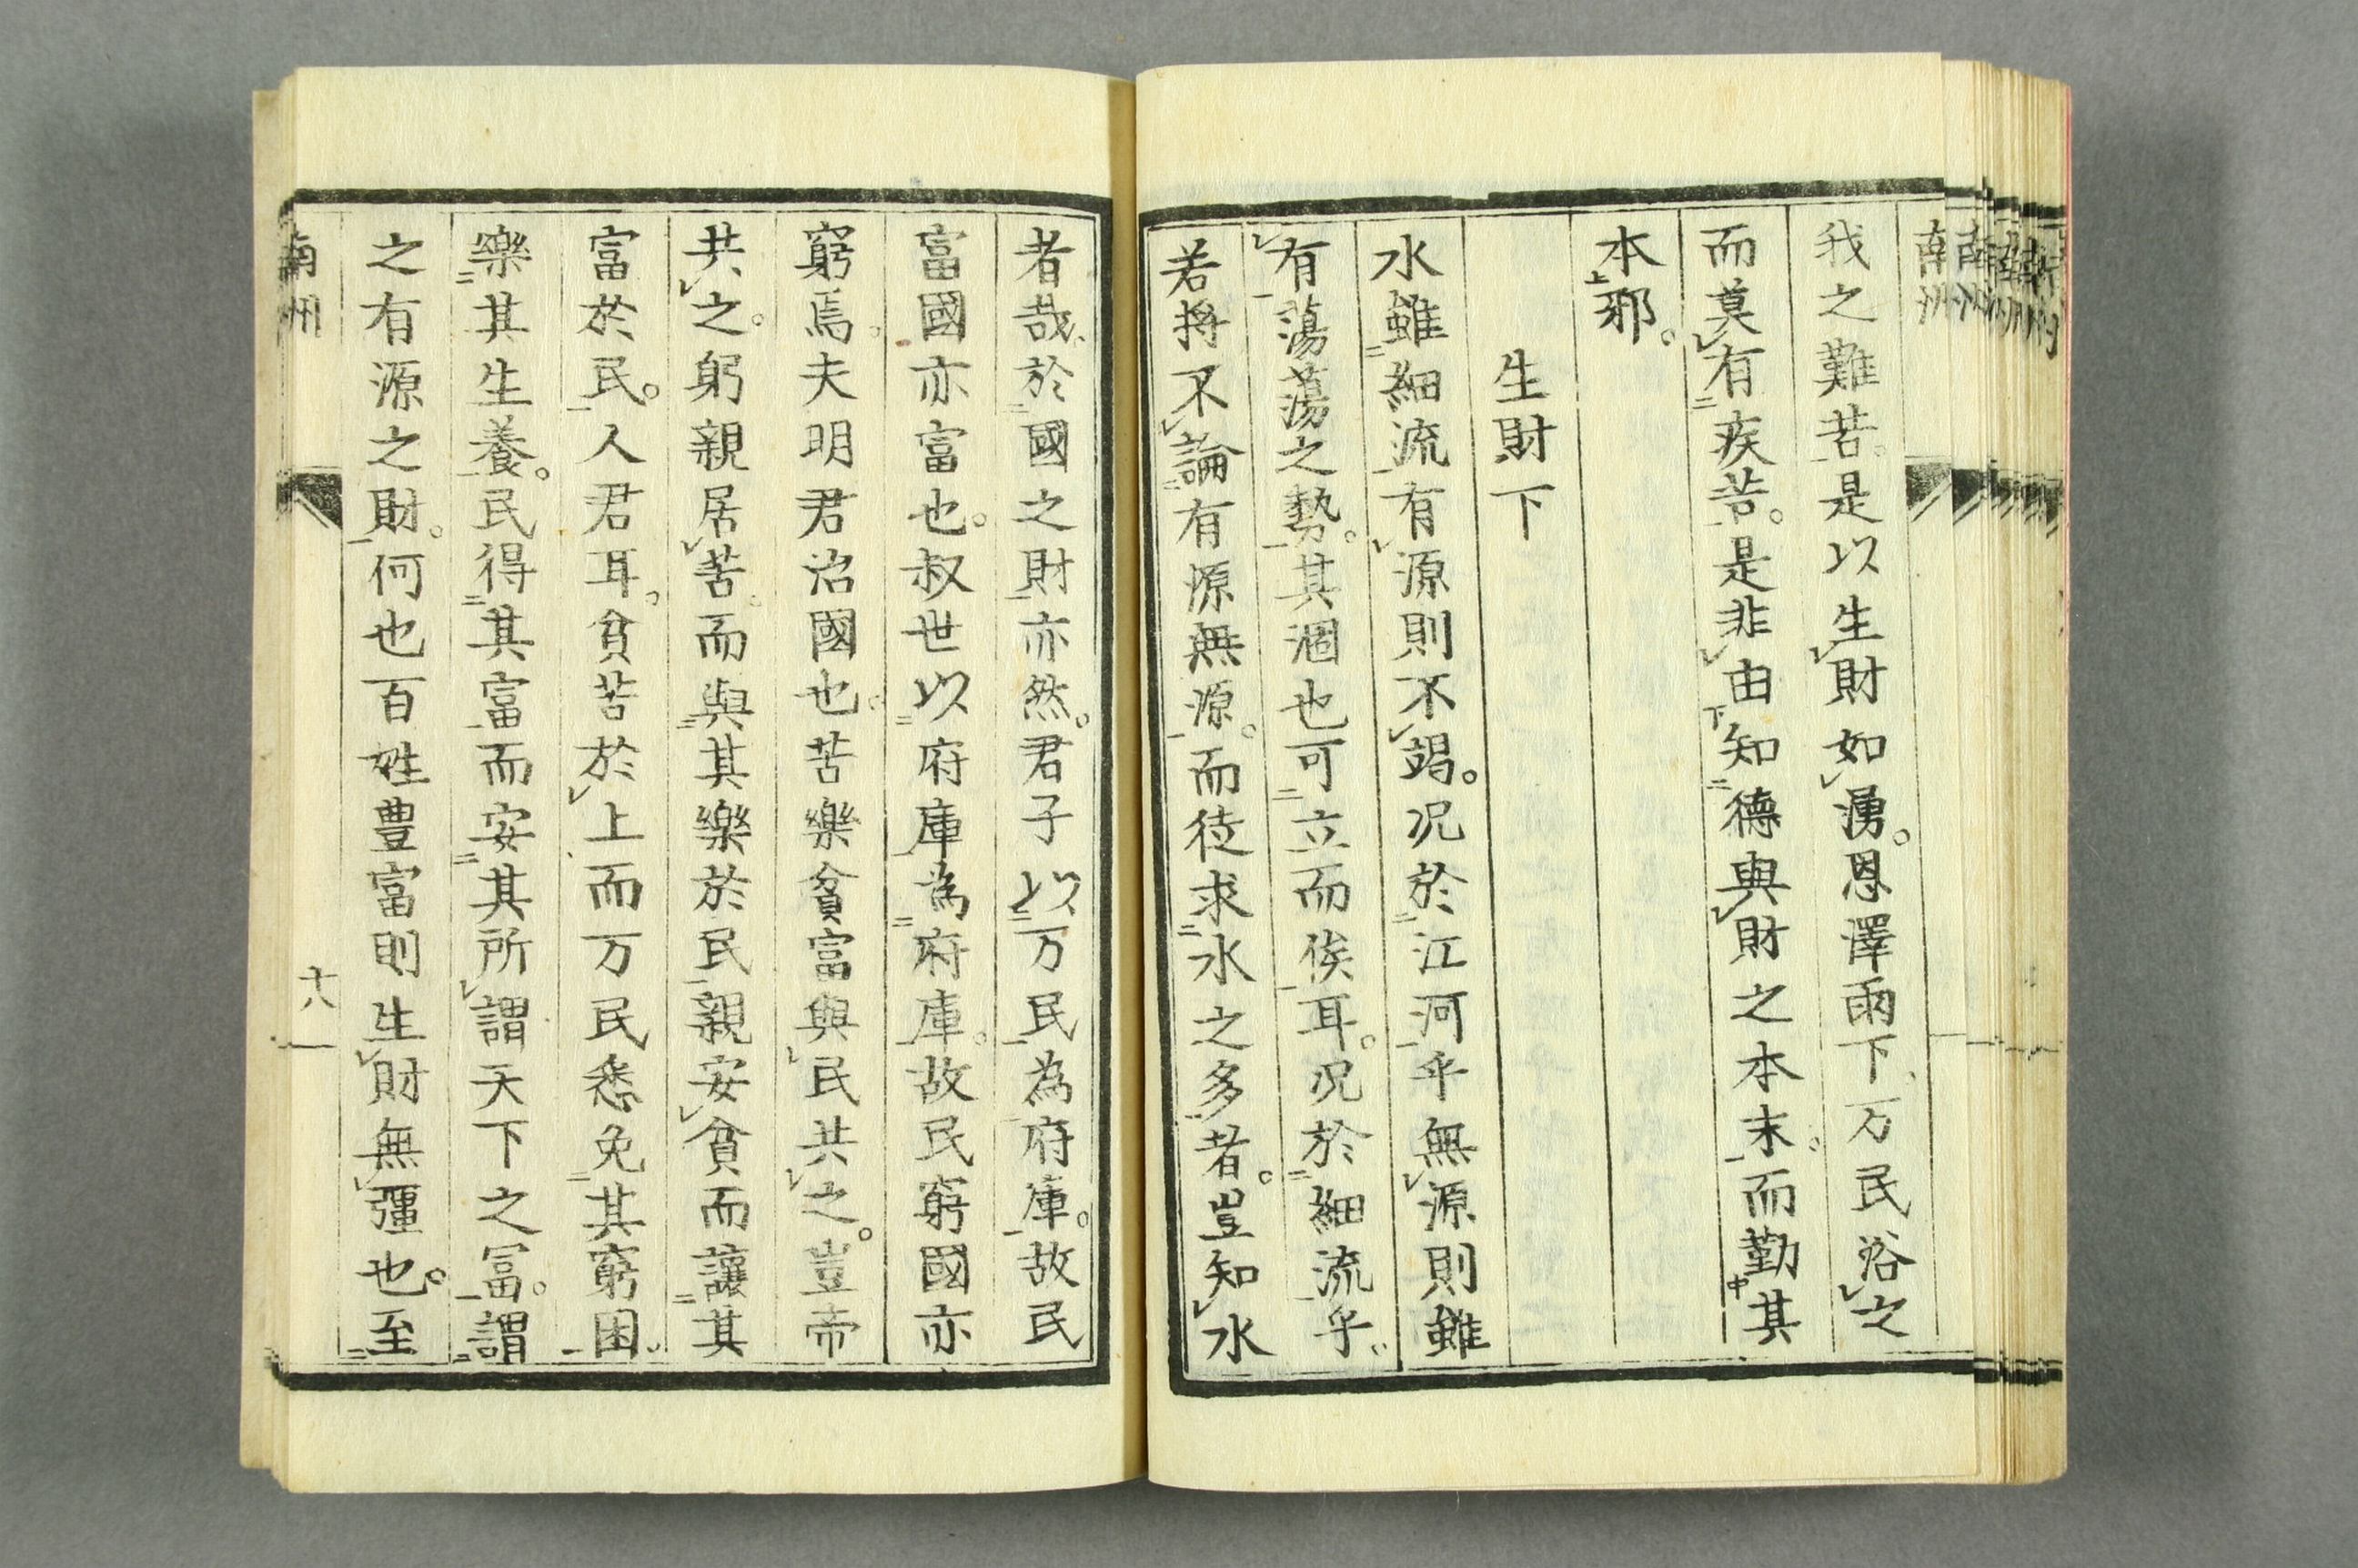 我之難苦。是以生財如湧。恩澤雨下、万民浴之
而莫有疾苦。是非由知德與財之本末。而勤其
本邪。
生財下
水雖細流有源則不竭。況於江河乎無源則雖
有蕩蕩之勢。其涸也可立而俟耳。况於細流乎。
若将不論有源無源。而徒求水之多者。豈知水
者哉、於國之財亦然。君子以万民為府庫。故民
富國亦富也。叔世以府庫為府庫。故民窮國亦
窮焉。夫明君治國也。苦樂貧富與民共之。豈帝
共之。躬親居苦。而與其樂於民親安貧而讓其
富於民。人君耳。貧苦於上而万民悉免其窮困。
樂其生養。民得其富而安其所謂天下之冨。謂
之有源之財。何也百姓豊富則生財無彊也。至
南州
十八